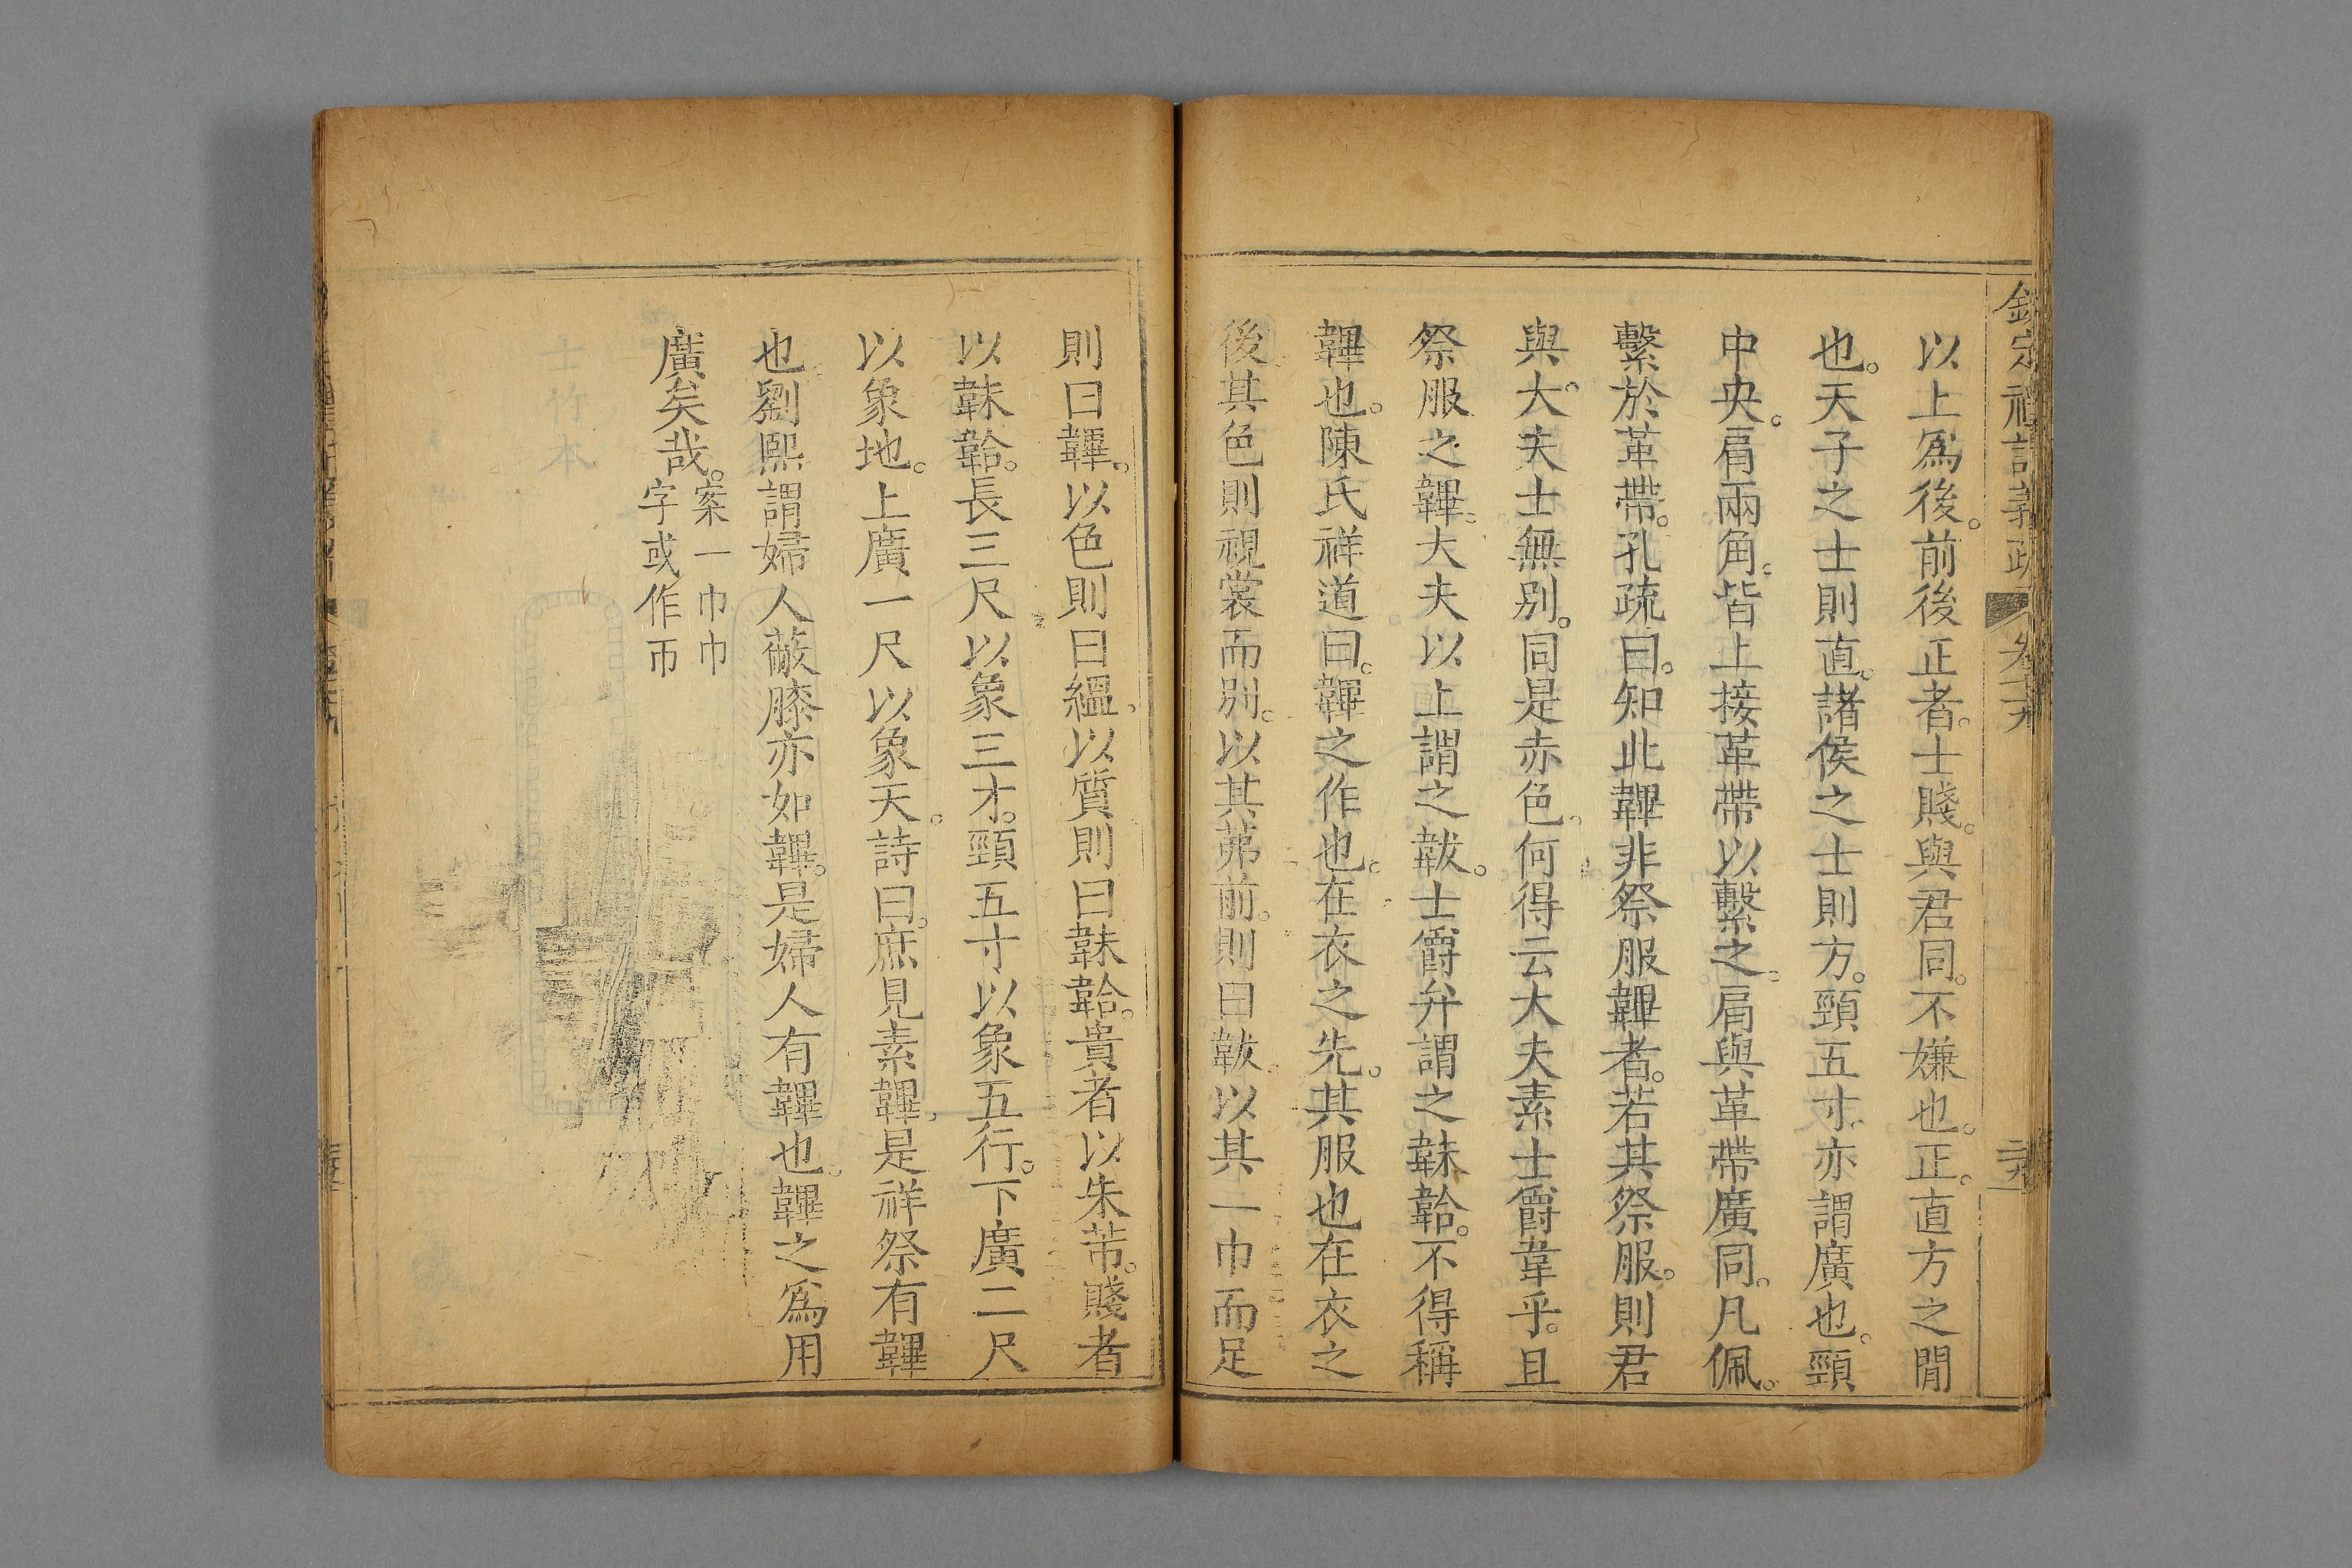 欽定禮記義疏 卷
以上爲後。前後正者。士賤。與君同。不嫌也。正。直方之閒
也。天子之士則直。諸侯之士則方。頸五寸。亦謂廣也。頸
中央。肩兩角。皆上接革帶以繫之。肩與革帶廣同。凡佩。
繫於革帶。孔疏曰。知此韠非祭服韠者。若其祭服。則君
與大。夫士無別。同是赤色。何得云大夫素士爵韋乎。且
祭服之韠。大夫以上謂之韍。士爵弁謂之韎韐。不得稱
韠也。陳氏祥道曰。韠之作也。在衣之先。其服也在衣之
後。其色則視裳而別。以其茀前。則曰韍。以其一巾而足
則曰韠。以色則曰縕。以質則曰韎韐。貴者以朱芾。賤者
以韎韐。長三尺以象三才。頸五寸以象五行。下廣二尺
以象地。上廣一尺以象天。詩曰。庶見素韠。是祥祭有韠
也。劉熙謂婦人蔽膝亦如韠。是婦人有韠也。韠之爲用
廣矣哉。案一巾巾
字或作帀